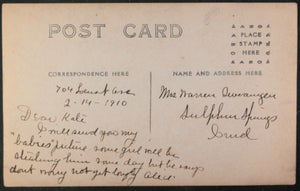 POST CARD
PLACE
STAMP
HERE
CORRESPONDENCE HERE
NAME AND ADDRESS HERE
704 Locust Ave
2-14-1910
Dear Kate
I will send you my
"babies" picture some girl will be
stealing him some day but he says
dont worry not get lonely
Mrs Warren
Sulphur Springs
Ind